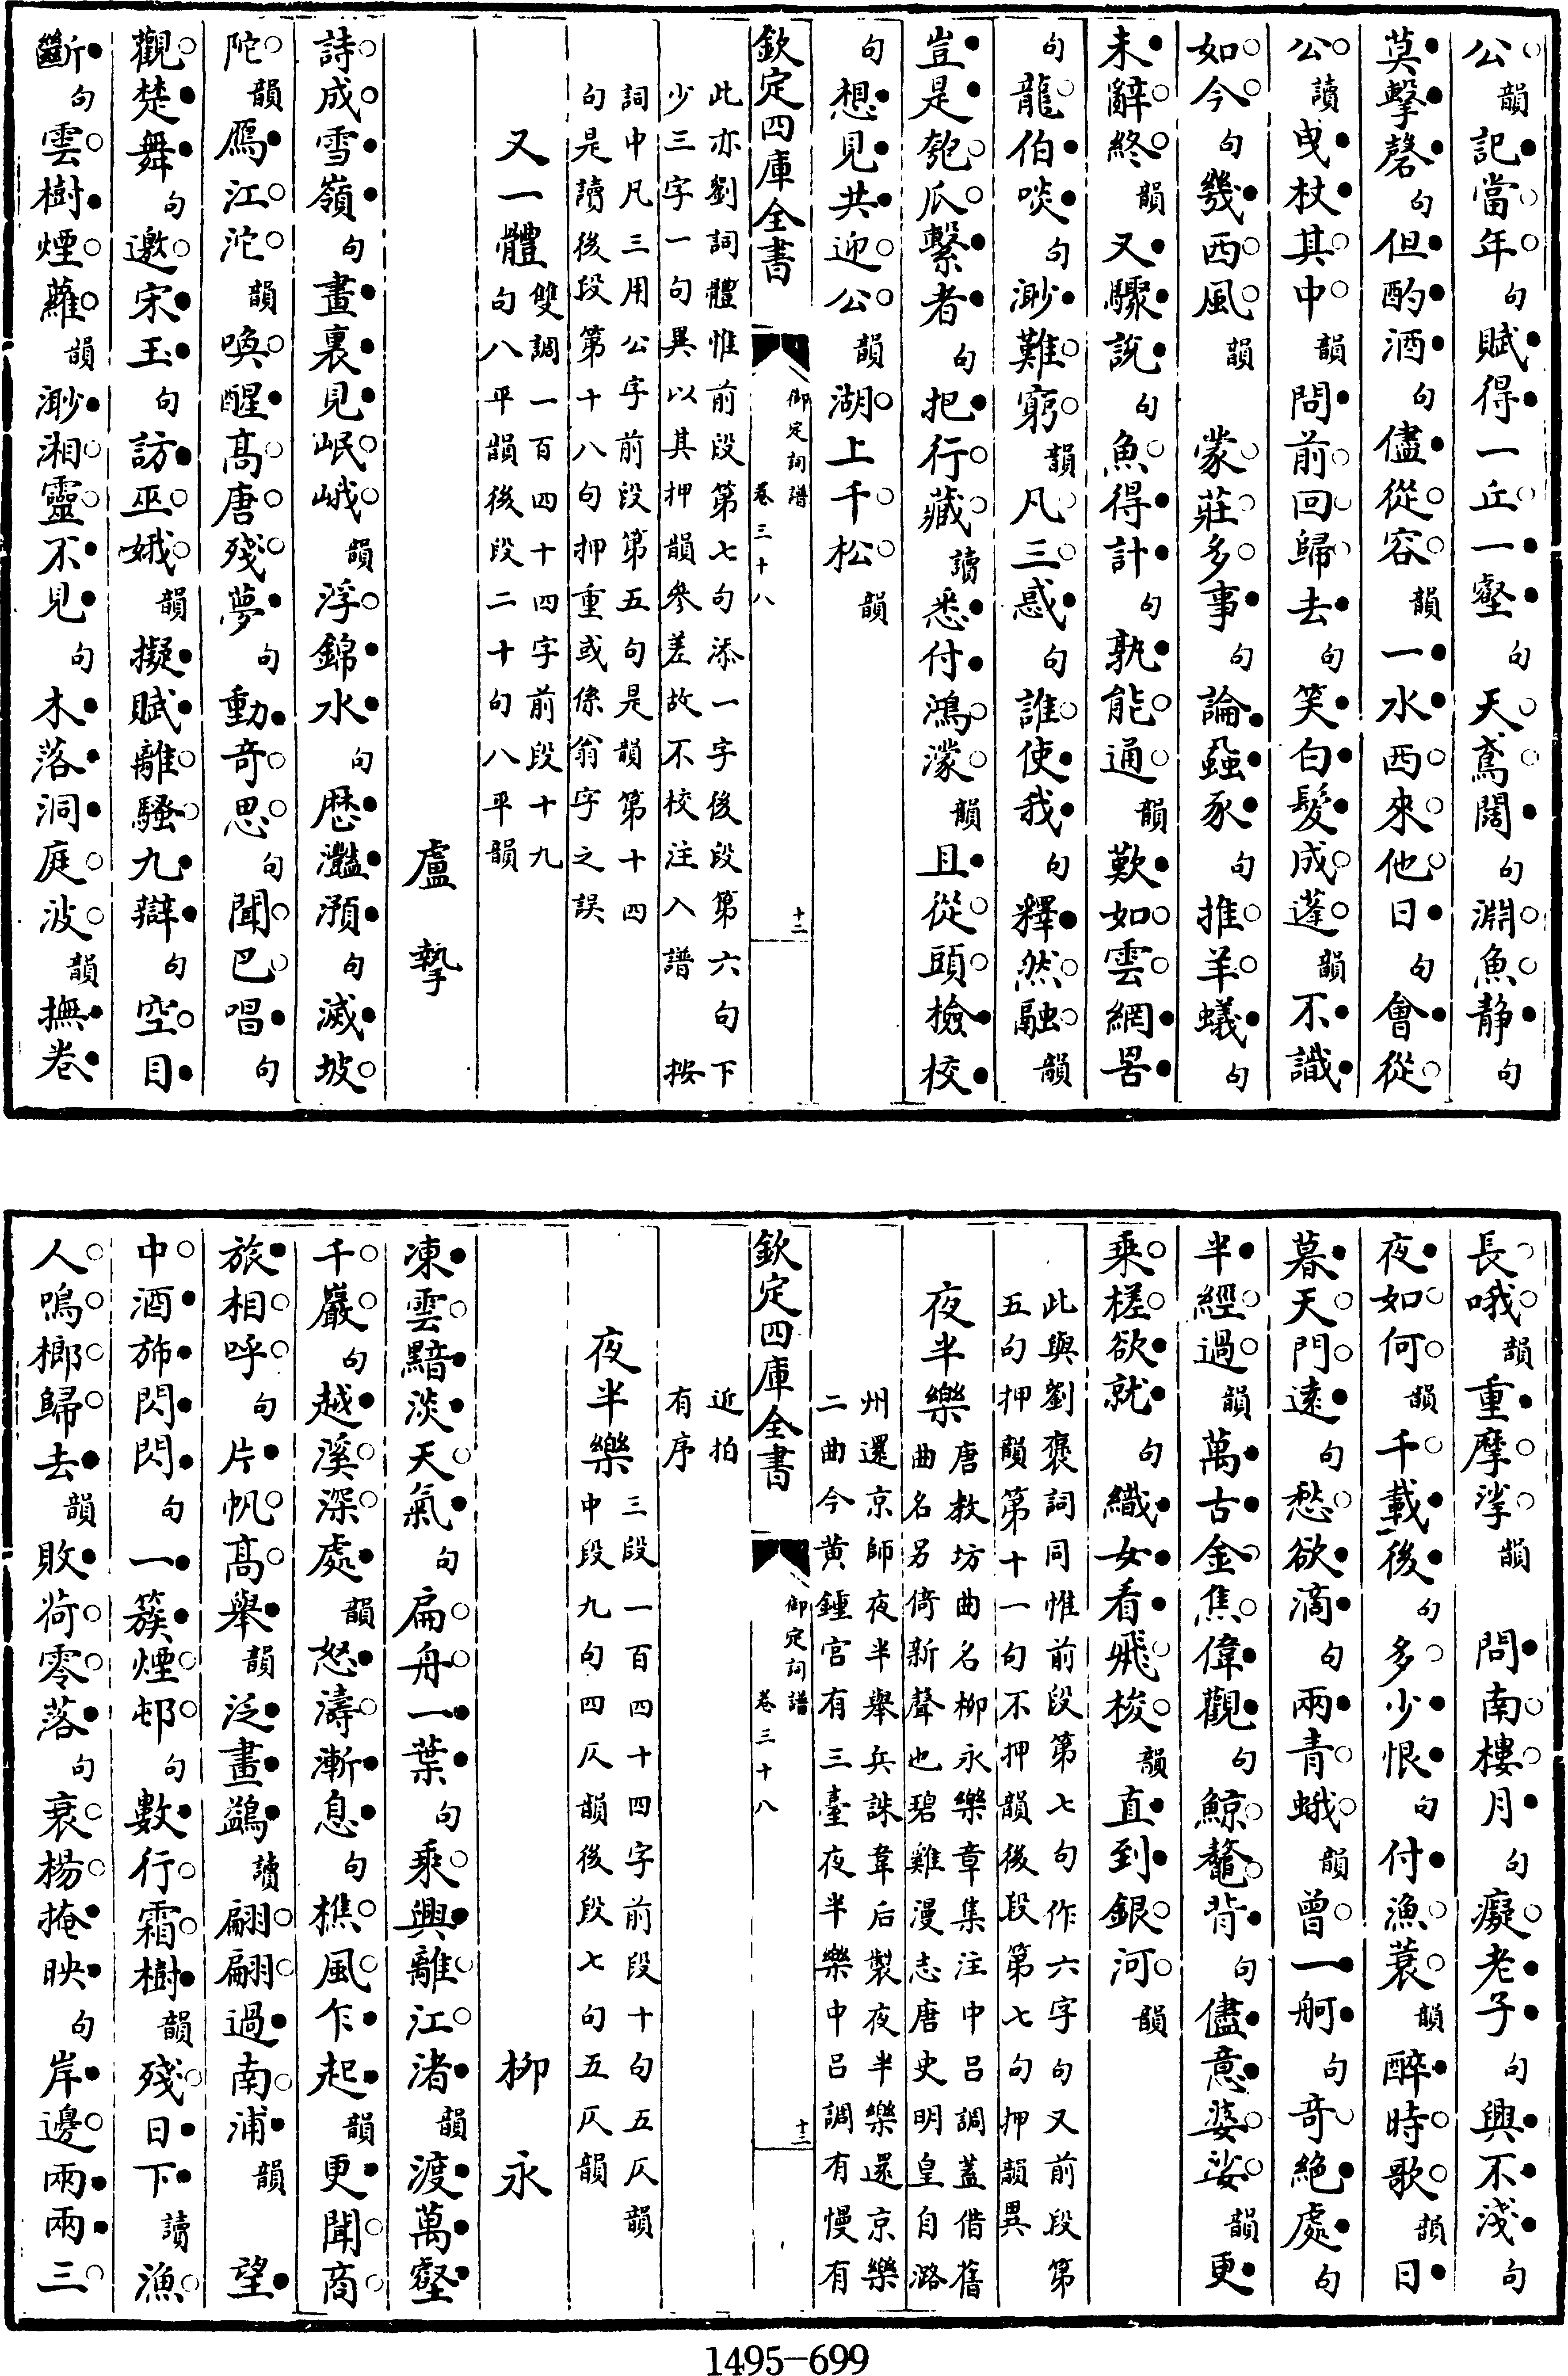 公韻記當年句賦得一丘一壑句天鳶闊句淵魚静句
莫擊磬句但酌酒句儘從容韻一水西來他日句會從
公讀曳杖其中韻問前回歸去句笑白髮成蓬韻不識
如今句幾西風韻　蒙莊多事句論蝨豕句推羊蟻句
未辭終韻又驟說句魚得計句孰能通韻歎如雲網罟
句龍伯啖句渺難窮韻凡三惑句誰使我句釋然融韻
豈是匏瓜繫者句把行藏讀悉付鴻濛韻且從頭檢校
句想見共迎公韻湖上千松韻
欽定四庫全書　御定詞譜　卷三十八　十二
此亦劉詞體惟前段第七句添一字後段第六句下
少三字一句異以其押韻參差故不校注入譜　按
詞中凡三用公字前段第五句是韻第十四
句是讀後段第十八句押重或係翁字之誤
又一體雙調一百四十四字前段十九
句八平韻後段二十句八平韻
盧摯
詩成雪嶺句畫裏見岷峨韻浮錦水句歴灔澦句滅坡
陀韻鴈江沱韻喚醒高唐殘夢句動奇思句聞巴唱句
觀楚舞句邀宋玉句訪巫娥韻擬賦離騷九辯句空目
斷句雲樹煙蘿韻渺湘靈不見句木落洞庭波韻撫卷
長哦韻重摩挲韻　問南樓月句癡老子句興不淺句
夜如何韻千載後句多少恨句付漁蓑韻醉時歌韻日
暮天門遠句愁欲滴句兩青蛾韻曾一舸句奇絶處句
半經過韻萬古金焦偉觀句鯨鼇背句儘意婆娑韻更
乘槎欲就句織女看飛梭韻直到銀河韻
此與劉褒詞同惟前段第七句作六字句又前段第
五句押韻第十一句不押韻後段第七句押韻異
夜半樂唐教坊曲名柳永樂章集注中呂調蓋借舊
曲名另倚新聲也碧雞漫志唐史明皇自潞
州還京師夜半舉兵誅韋后製夜半樂還京樂
二曲今黄鍾宮有三臺夜半樂中呂調有慢有
欽定四庫全書　御定詞譜　卷三十八　十三
近拍
有序
夜半樂三段一百四十四字前段十句五仄韻
中段九句四仄韻後段七句五仄韻
柳永
凍雲黯淡天氣句扁舟一葉句乘興離江渚韻渡萬壑
千巖句越溪深處韻怒濤漸息句樵風乍起韻更聞商
旅相呼句片帆高舉韻泛畫鷁讀翩翩過南浦韻　望
中酒斾閃閃句一簇煙邨句數行霜樹韻殘日下讀漁
人鳴榔歸去韻敗荷零落句衰楊掩映句岸邊兩兩三
1495-699